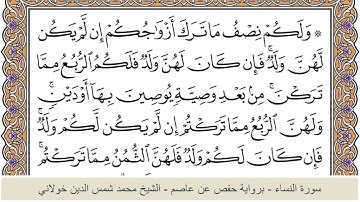 ۞ وَلَكُمْ نِصْفُ مَا تَرَكَ أَزْوَٰجُكُمْ إِن لَّمْ يَكُن
لَّهُنَّ وَلَدٌ ۚ فَإِن كَانَ لَهُنَّ وَلَدٌ فَلَكُمُ ٱلرُّبُعُ مِمَّا
تَرَكْنَ ۚ مِنۢ بَعْدِ وَصِيَّةٍ يُوصِينَ بِهَآ أَوْ دَيْنٍ ۚ
وَلَهُنَّ ٱلرُّبُعُ مِمَّا تَرَكْتُمْ إِن لَّمْ يَكُن لَّكُمْ وَلَدٌ ۚ
فَإِن كَانَ لَكُمْ وَلَدٌ فَلَهُنَّ ٱلثُّمُنُ مِمَّا تَرَكْتُم ۚ
سورة النساء - برواية حفص عن عاصم - الشيخ محمد شمس الدين خولاني